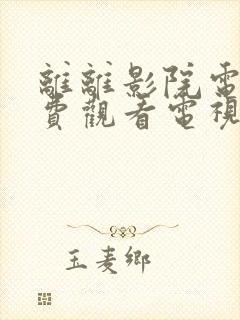 離離影院電
費觀看電視
玉麦鄉